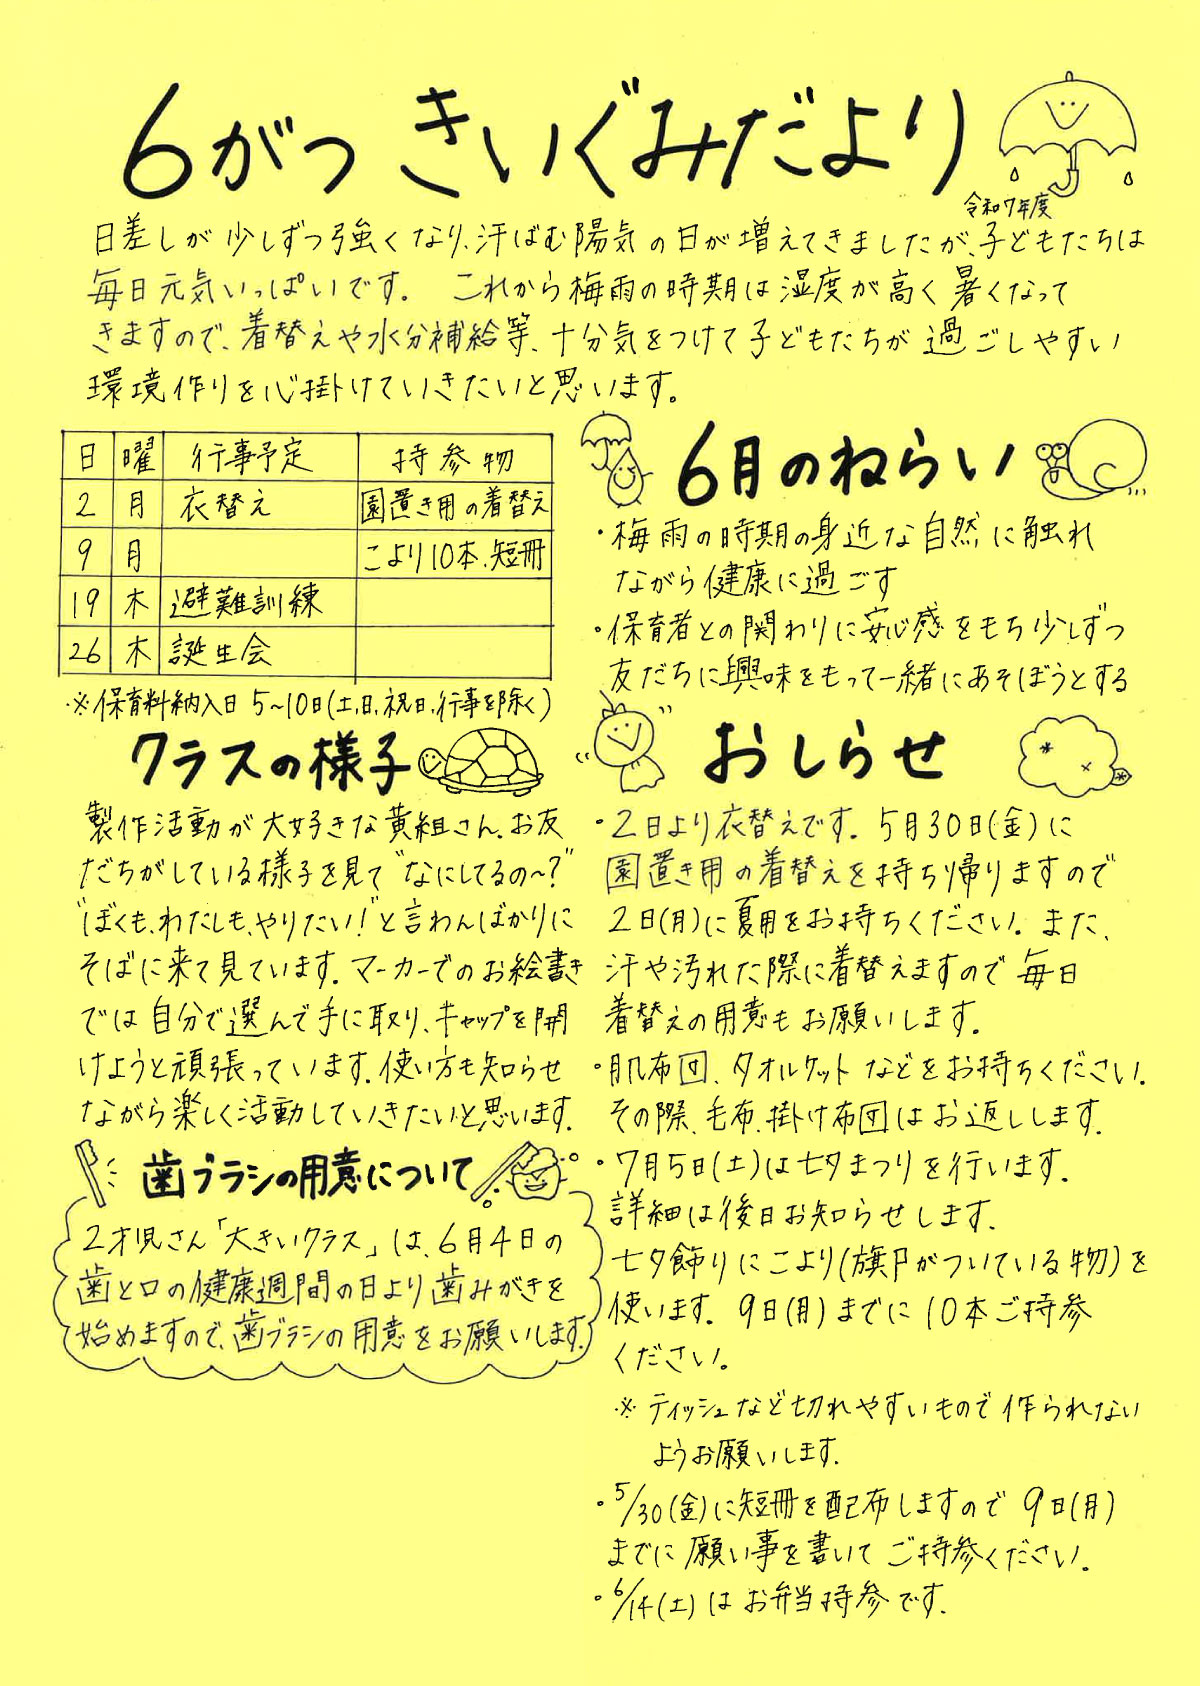 6がつ きいぐみだより
令和7年度
日差しが少しずつ強くなり、汗ばむ陽気の日が増えてきましたが、子どもたちは
毎日元気いっぱいです。 これから梅雨の時期は湿度が高く暑くなって
きますので、着替えや水分補給等、十分気をつけて子どもたちが過ごしやすい
環境作りを心掛けていきたいと思います。
日 曜 行事予定 持参物
2 月 衣替え 園置き用の着替え
9 月 こより10本、短冊
19 木 避難訓練
26 木 誕生会
※保育料納入日 5~10日(土,日,祝日,行事を除く)
6月のねらい
・梅雨の時期の身近な自然に触れ
ながら健康に過ごす
・保育者との関わりに安心感をもち少しずつ
友だちに興味をもって一緒にあそぼうとする
クラスの様子
製作活動が大好きな黄組さん。お友
だちがしている様子を見て"なにしてるの~?"
"ぼくも、わたしも、やりたい!"と言わんばかりに
そばに来て見ています。マーカーでのお絵書き
では自分で選んで手に取り、キャップを開
けようと頑張っています。使い方も知らせ
ながら楽しく活動していきたいと思います。
歯ブラシの用意について
2才児さん「大きいクラス」は、6月4日の
歯と口の健康週間の日より歯みがきを
始めますので、歯ブラシの用意をお願いします。
おしらせ
・2日より衣替えです。5月30日(金)に
園置き用の着替えを持ち帰りますので
2日(月)に夏用をお持ちください。また、
汗や汚れた際に着替えますので毎日
着替えの用意もお願いします。
・肌布団、タオルケットなどをお持ちください。
その際、毛布、掛け布団はお返しします。
・7月5日(土)は七夕まつりを行います。
詳細は後日お知らせします。
七夕飾りにこより(旗がついている物)を
使います。9日(月)までに10本ご持参
ください。
※ ティッシュなど切れやすいもので作られない
ようお願いします。
・5/30(金)に短冊を配布しますので9日(月)
までに願い事を書いてご持参ください。
・6/14(土)はお弁当持参です。